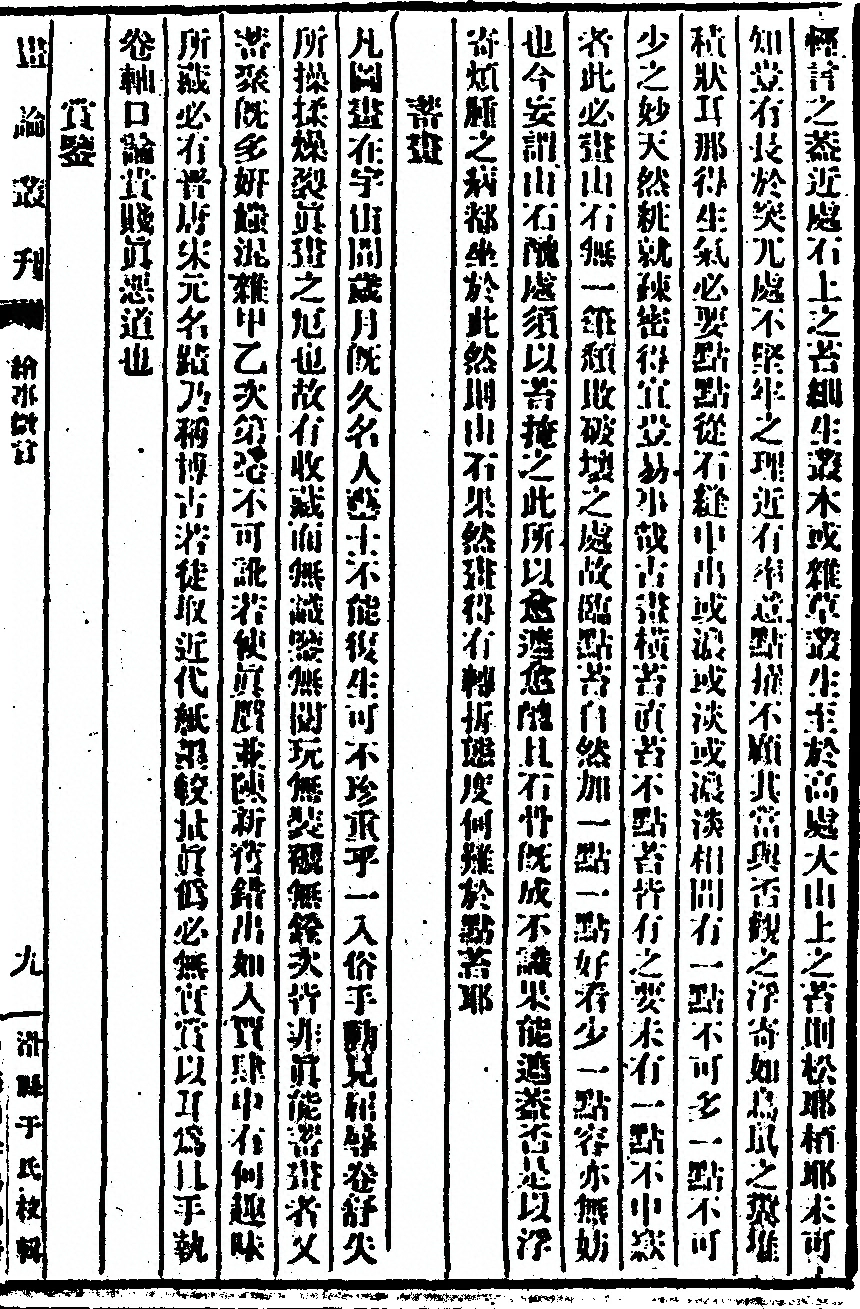 怪言之蓋近處石上之苔細生叢木或雜草叢生至於高處大山上之苔則松耶栢耶未可
知豈有長於突兀處不堅牢之理近有率意點擢不顧其當與否觀之浮寄如鳥鼠之糞堆
積狀耳那得生氣必要點點從石縫中出或濃或淡或濃淡相間有一點不可多一點不可
少之妙天然粧就疎密得宜豈易事哉古畫橫苔直苔不點苔皆有之要未有一點不中窾
者此必畫山石無一筆頹敗破壞之處故臨點苔自然加一點一點好看少一點容亦無妨
也今妄謂山石醜處須以苔掩之此所以愈遮愈醜且石骨旣成不識果能遮蓋否是以浮
寄煩腫之病都坐於此然則山石果然畫得有轉折態度何難於點苔耶
蓄畫
凡圖畫在宇宙間歲月旣久名人藝士不能復生可不珍重乎一入俗手動見屈辱卷舒失
所操揉燥裂眞畫之厄也故有收藏而無識鑒無閱玩無裝褫無銓次皆非眞能蓄畫者又
蓄聚旣多妍蚩混雜甲乙次第憑不可訛若使眞贋並陳新舊錯出如入買肆中有何趣味
所藏必有晋唐宋元名點乃稱博古若徒取近代紙墨較量眞僞必無宜賞以耳爲目手執
卷軸口論貴賤眞惡道也
賞鑒
畫論叢刊
繪事微言
九
濰縣于氏校輯